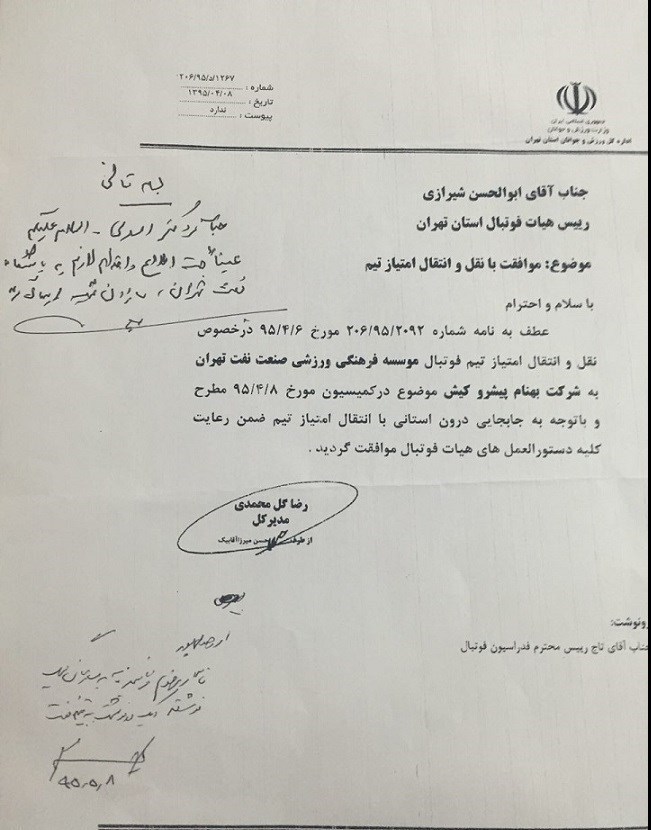 شماره : ۲۰۶/۹۵/د/۱۲۶۷
تاریخ : ۱۳۹۵/۰۴/۰۸
پیوست : ندارد
جمهوری اسلامی ایران
وزارت ورزش و جوانان
اداره کل ورزش و جوانان استان تهران
جناب آقای ابوالحسن شیرازی
رییس هیات فوتبال استان تهران
موضوع: موافقت با نقل و انتقال امتیاز تیم
با سلام و احترام
عطف به نامه شماره ۲۰۶/۹۵/۲۰۹۲ مورخ ۹۵/۴/۶ درخصوص
نقل و انتقال امتیاز تیم فوتبال موسسه فرهنگی ورزشی صنعت نفت تهران
به شرکت بهنام پیشرو کیش موضوع درکمیسیون مورخ ۹۵/۴/۸ مطرح
و باتوجه به جابجایی درون استانی با انتقال امتیاز تیم ضمن رعایت
کلیه دستورالعمل های هیات فوتبال موافقت گردید .
رضا گل محمدی
مدیرکل
از طرف حسن میرزاآقابیک
رونوشت:
جناب آقای تاج رییس محترم فدراسیون فوتبال
بسمه تعالی
السلام علیکم
عیناً جهت اطلاع و اقدام لازم به باشگاه
نفت تهران
۹۵،۵،۸